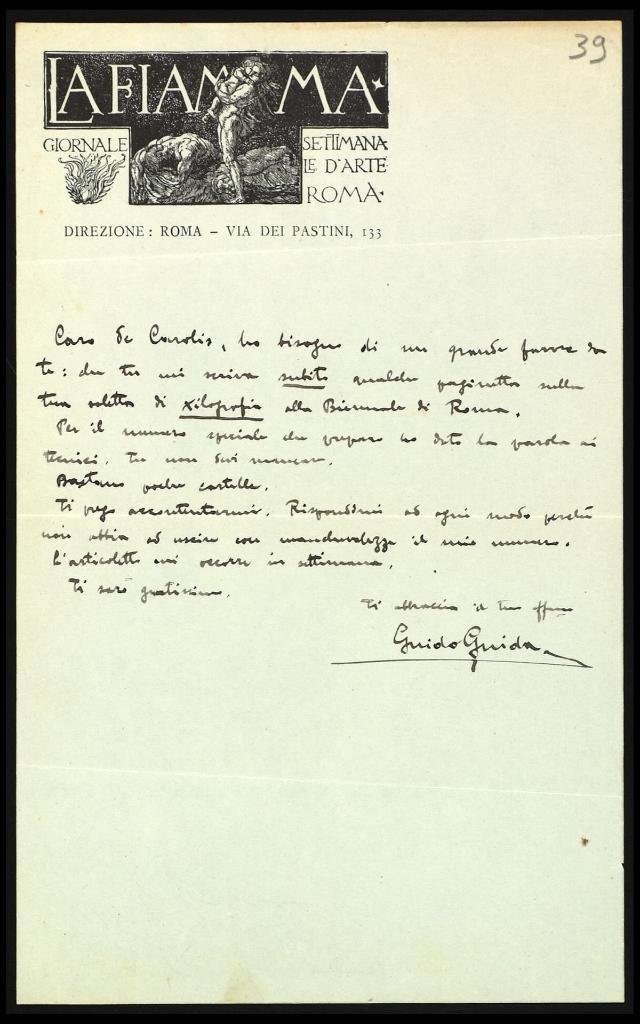 39
LA FIAMMA
GIORNALE SETTIMANA
LE D'ARTE
ROMA
DIREZIONE: ROMA – VIA DEI PASTINI, 133
Caro de Carolis, ho bisogno di un grande favore da
te: che tu mi scriva subito qualche paginetta sulla
tua saletta di xilografia alla Biennale di Roma.
Per il numero speciale che preparo ho dato la parola ai
tecnici. Tu non devi mancare.
Bastano poche cartelle.
Ti prego accontentarmi. Rispondimi ad ogni modo perchè
non abbia ad uscire con manchevolezze il mio numero.
L'articoletto mi occorre in settimana.
Ti sarò gratissimo.
Ti abbraccia il tuo affmo
Guido Guida